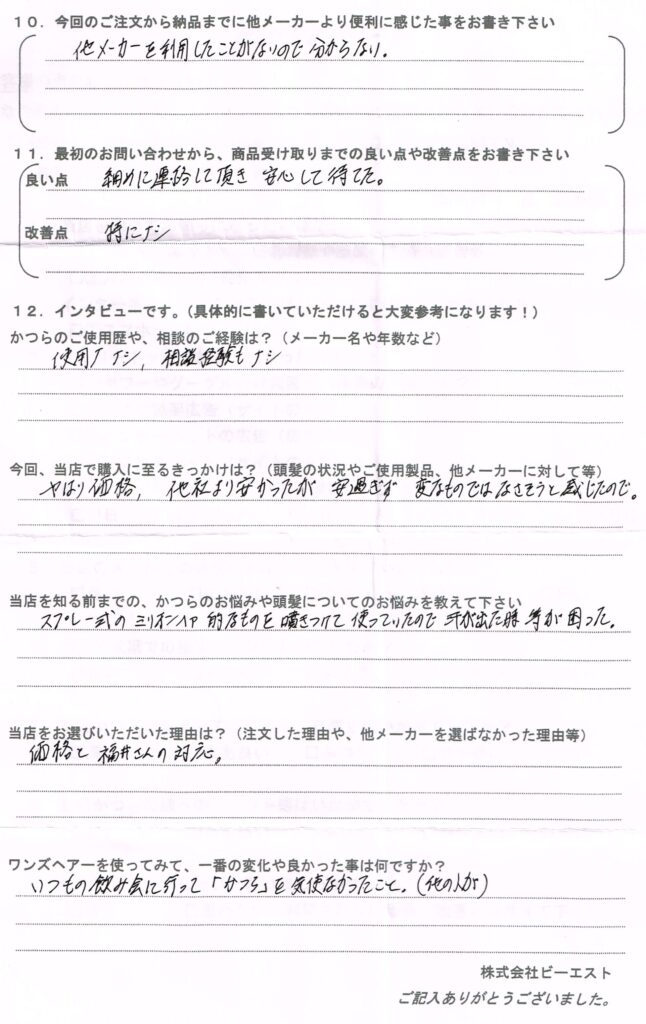 １０．今回のご注文から納品までに他メーカーより便利に感じた事をお書き下さい
他メーカーを利用したことがないので分からない。
１１．最初のお問い合わせから、商品受け取りまでの良い点や改善点をお書き下さい
良い点 細めに連絡して頂き 安心して待てた。
改善点 特にナシ
１２．インタビューです。（具体的に書いていただけると大変参考になります！）
かつらのご使用歴や、相談のご経験は？（メーカー名や年数など）
使用ナシ，相談経験もナシ
今回、当店で購入に至るきっかけは？（頭髪の状況やご使用製品、他メーカーに対して等）
やはり価格，他社より安かったが 安過ぎず 変なものではなさそうと感じたので。
当店を知る前までの、かつらのお悩みや頭髪についてのお悩みを教えて下さい
スプレー式の ミリオンヘア 的なものを 噴きつけて 使っていたので 汗が出た時 等が 困った。
当店をお選びいただいた理由は？（注文した理由や、他メーカーを選ばなかった理由等）
価格と 福井さんの 対応。
ワンズヘアーを使ってみて、一番の変化や良かった事は何ですか？
いつもの飲み会に行って「かつら」を気使なかったこと。（他の人が）
株式会社ビーエスト
ご記入ありがとうございました。